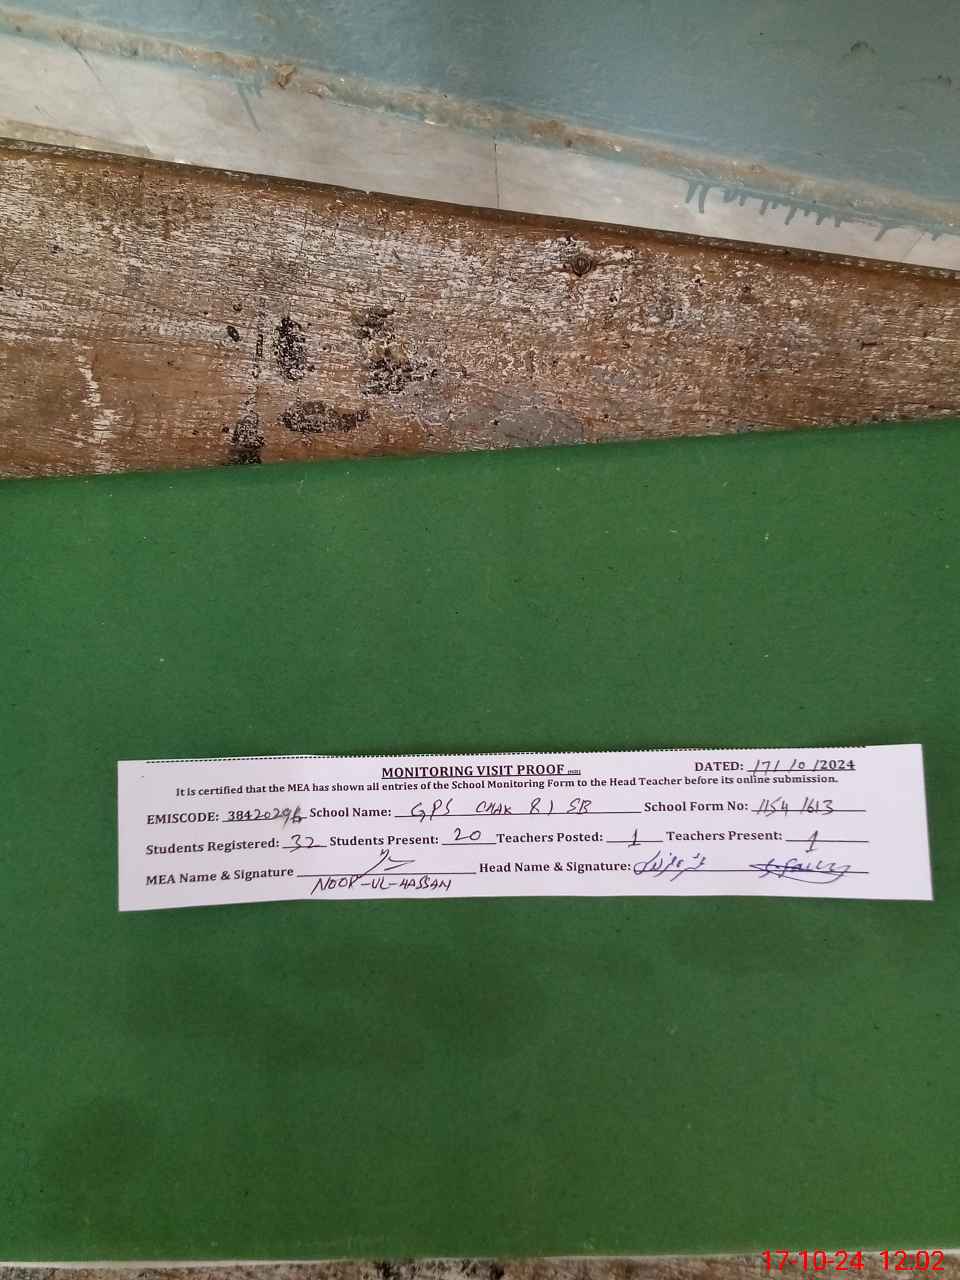 MONITORING VISIT PROOF
DATED: 17/10/2024
It is certified that the MEA has shown all entries of the School Monitoring Form to the Head Teacher before its online submission.
EMISCODE: 38420296 School Name: GPS CHAK 81 SB School Form No: 11541613
Students Registered: 32 Students Present: 20 Teachers Posted: 1 Teachers Present: 1
MEA Name & Signature NOOR-UL-HASSAN Head Name & Signature:
17-10-24 12:02